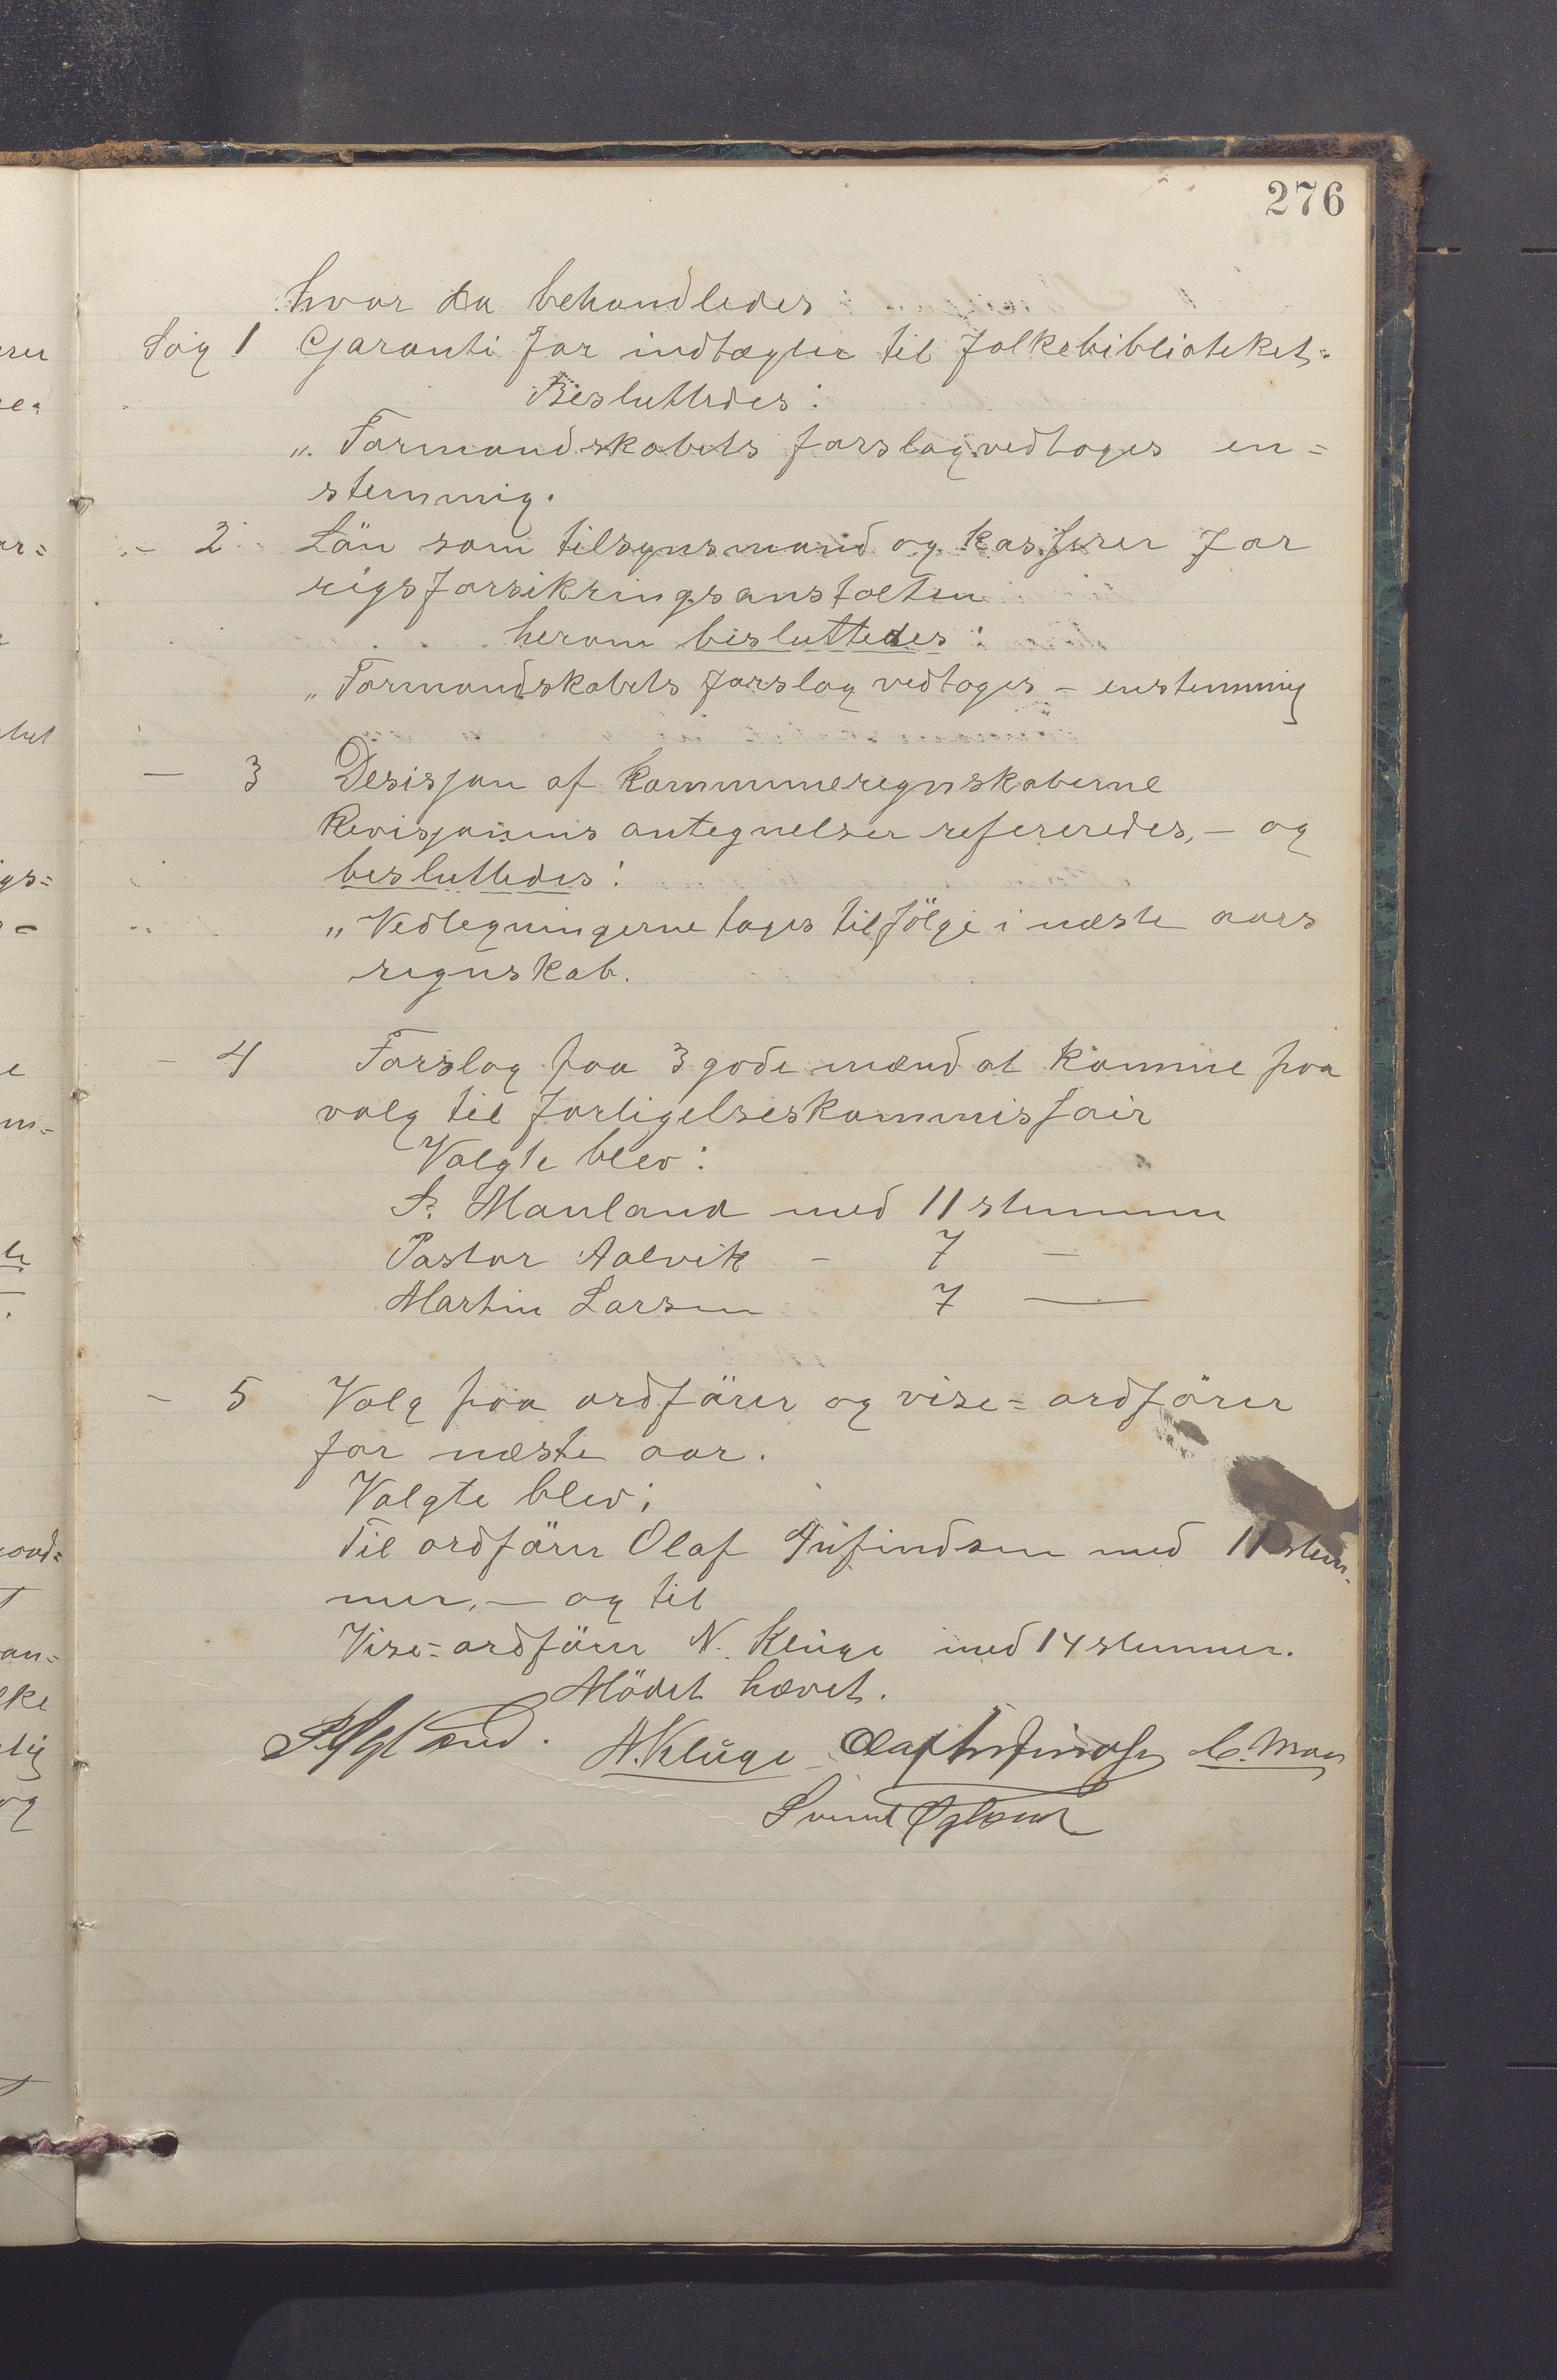 276
hvor da behandledes
Sag 1 Garanti for indtægter til folkebiblioteket.
Besluttedes:
„ Formandskabets forslag vedtoges en=
stemmig.
- 2 Län som tilsynsmand og kasserer for
rigsforsikringsanstalten
herom besluttedes:
„ Formandskabets forslag vedtoges - enstemmig
- 3 Desisjon af kommuneregnskaberne
Revisjonens antegnelser refereredes, - og
besluttedes:
„ Vedlegningerne tages tilfölge i næste aars
regnskab.
- 4 Forslag paa 3 gode mænd at komme paa
valg til forligelseskommissair
Valgte blev:
S. Mauland med 11 stemmer
Pastor Aalvik - 7 -
Martin Larsen 7 -
- 5 Valg paa ordförer og vise=ordförer
for næste aar.
Valgte blev;
Til ordförer Olaf med 11 stem-
mer, - og til
Vise=ordförer N. Kluge med 14 stemmer.
Mödet hævet.
N. Kluge Olaf
Øglænd